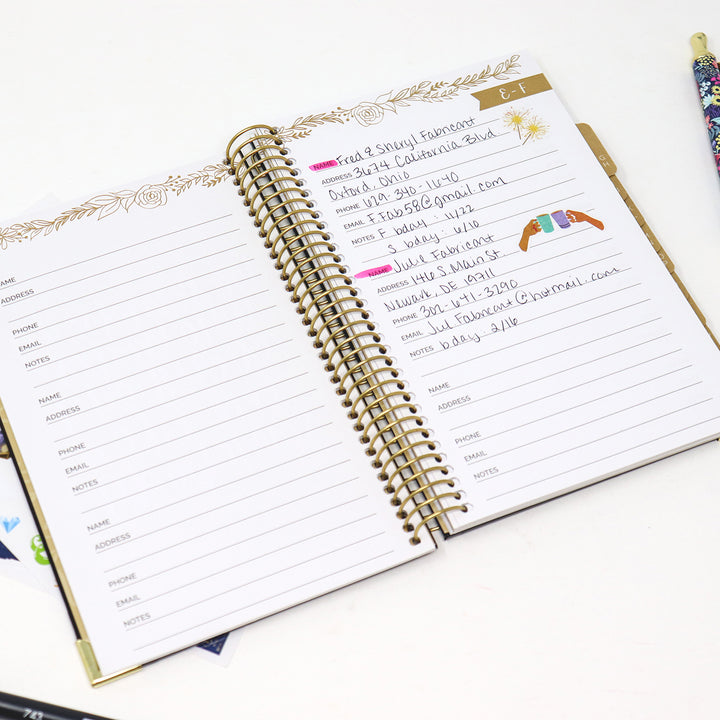 NAME
ADDRESS
PHONE
EMAIL
NOTES
NAME
ADDRESS
PHONE
EMAIL
NOTES
NAME
ADDRESS
PHONE
EMAIL
NOTES
E-F
NAME Fred & Sheryl Fabricant
ADDRESS 3674 California Blvd
Oxford, Ohio
PHONE 629-340-1640
EMAIL F.Fab58@gmail.com
NOTES F bday: 11/22
S bday: 6/10
NAME Julie Fabricant
ADDRESS 146 S. Main St.
Newark, DE 19711
PHONE 302-641-3290
EMAIL Jul Fabricant@hotmail.com
NOTES bday: 2/16
NAME
ADDRESS
PHONE
EMAIL
NOTES
GH
743